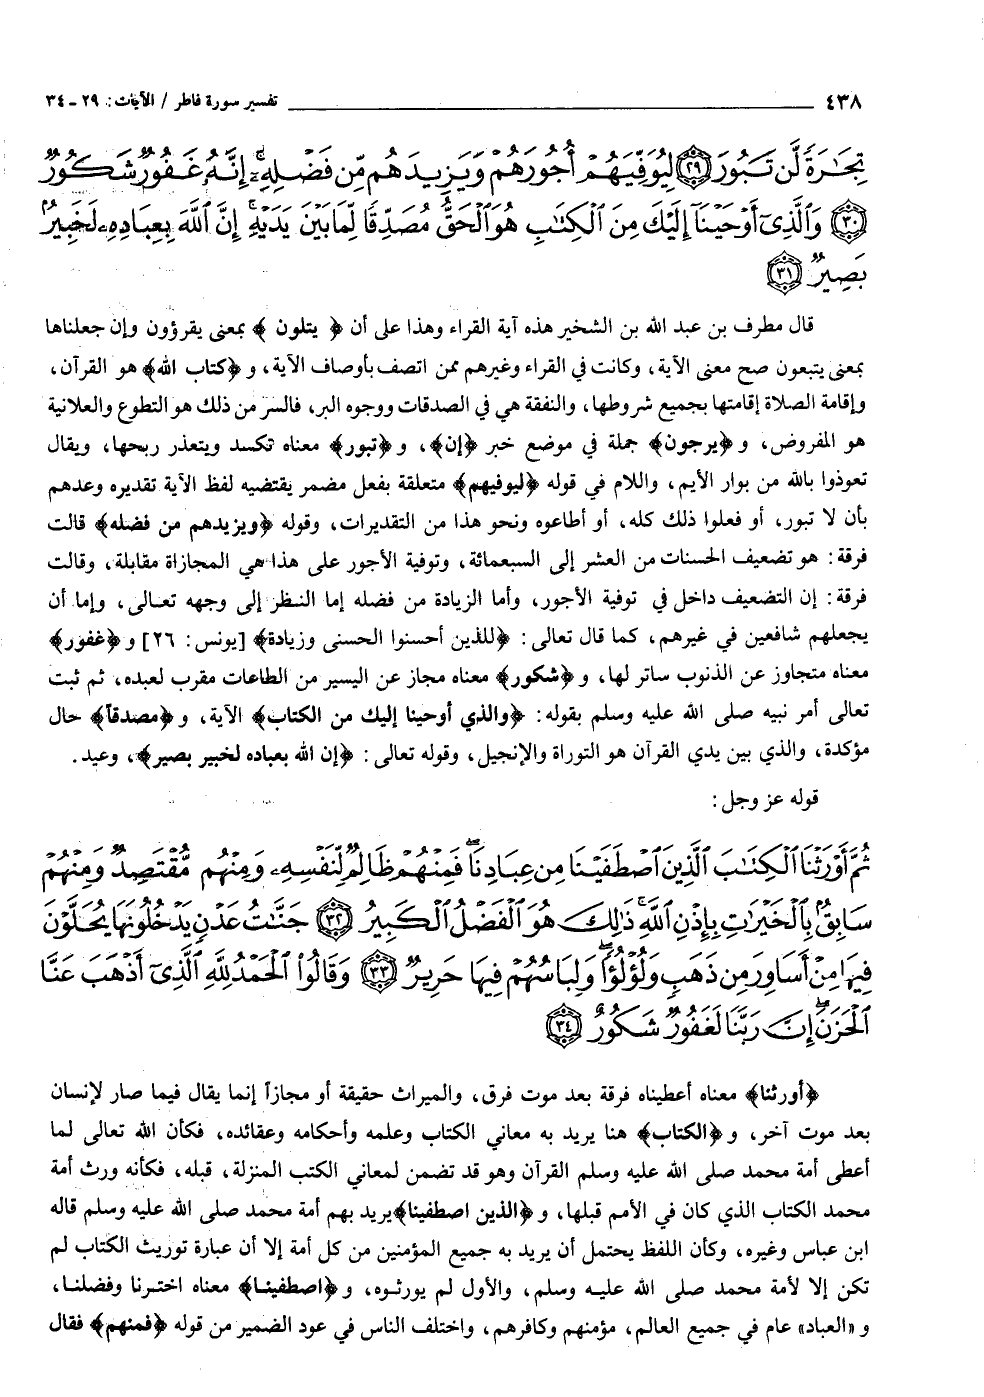 ٤٣٨ تفسير سورة فاطر / الآيات: ٢٩ ـ ٣٤
تِجَٰرَةً لَّن تَبُورَ ﴿٢٩﴾ لِيُوَفِّيَهُمْ أُجُورَهُمْ وَيَزِيدَهُم مِّن فَضْلِهِۦٓ ۚ إِنَّهُۥ غَفُورٌ شَكُورٌ
﴿٣٠﴾ وَٱلَّذِىٓ أَوْحَيْنَآ إِلَيْكَ مِنَ ٱلْكِتَٰبِ هُوَ ٱلْحَقُّ مُصَدِّقًا لِّمَا بَيْنَ يَدَيْهِ ۗ إِنَّ ٱللَّهَ بِعِبَادِهِۦ لَخَبِيرٌۢ
بَصِيرٌ ﴿٣١﴾
قال مطرف بن عبد الله بن الشخير هذه آية القراء وهذا على أن ﴿ يتلون ﴾ بمعنى يقرؤون وإن جعلناها
بمعنى يتبعون صح معنى الآية، وكانت في القراء وغيرهم ممن اتصف بأوصاف الآية، و ﴿كتاب الله﴾ هو القرآن،
وإقامة الصلاة إقامتها بجميع شروطها، والنفقة هي في الصدقات ووجوه البر، فالسر من ذلك هو التطوع والعلانية
هو المفروض، و ﴿يرجون﴾ جملة في موضع خبر ﴿إن﴾، و ﴿تبور﴾ معناه تكسد ويتعذر ربحها، ويقال
تعوذوا بالله من بوار الأيم، واللام في قوله ﴿ليوفيهم﴾ متعلقة بفعل مضمر يقتضيه لفظ الآية تقديره وعدهم
بأن لا تبور، أو فعلوا ذلك كله، أو أطاعوه ونحو هذا من التقديرات، وقوله ﴿ويزيدهم من فضله﴾ قالت
فرقة: هو تضعيف الحسنات من العشر إلى السبعمائة، وتوفية الأجور على هذا هي المجازاة مقابلة، وقالت
فرقة: إن التضعيف داخل في توفية الأجور، وأما الزيادة من فضله إما النظر إلى وجهه تعالى، وإما أن
يجعلهم شافعين في غيرهم، كما قال تعالى: ﴿للذين أحسنوا الحسنى وزيادة﴾ [يونس: ٢٦] و ﴿غفور﴾
معناه متجاوز عن الذنوب ساتر لها، و ﴿شكور﴾ معناه مجاز عن اليسير من الطاعات مقرب لعبده، ثم ثبت
تعالى أمر نبيه صلى الله عليه وسلم بقوله: ﴿والذي أوحينا إليك من الكتاب﴾ الآية، و ﴿مصدقاً﴾ حال
مؤكدة، والذي بين يدي القرآن هو التوراة والإنجيل، وقوله تعالى: ﴿إن الله بعباده لخبير بصير﴾، وعيد.
قوله عز وجل:
ثُمَّ أَوْرَثْنَا ٱلْكِتَٰبَ ٱلَّذِينَ ٱصْطَفَيْنَا مِنْ عِبَادِنَا ۖ فَمِنْهُمْ ظَالِمٌ لِّنَفْسِهِۦ وَمِنْهُم مُّقْتَصِدٌ وَمِنْهُمْ
سَابِقٌۢ بِٱلْخَيْرَٰتِ بِإِذْنِ ٱللَّهِ ۚ ذَٰلِكَ هُوَ ٱلْفَضْلُ ٱلْكَبِيرُ ﴿٣٢﴾ جَنَّٰتُ عَدْنٍ يَدْخُلُونَهَا يُحَلَّوْنَ
فِيهَا مِنْ أَسَاوِرَ مِن ذَهَبٍ وَلُؤْلُؤًا ۖ وَلِبَاسُهُمْ فِيهَا حَرِيرٌ ﴿٣٣﴾ وَقَالُوا۟ ٱلْحَمْدُ لِلَّهِ ٱلَّذِىٓ أَذْهَبَ عَنَّا
ٱلْحَزَنَ ۖ إِنَّ رَبَّنَا لَغَفُورٌ شَكُورٌ ﴿٣٤﴾
﴿أورثنا﴾ معناه أعطيناه فرقة بعد موت فرق، والميراث حقيقة أو مجازاً إنما يقال فيما صار لإنسان
بعد موت آخر، و ﴿الكتاب﴾ هنا يريد به معاني الكتاب وعلمه وأحكامه وعقائده، فكأن الله تعالى لما
أعطى أمة محمد صلى الله عليه وسلم القرآن وهو قد تضمن لمعاني الكتب المنزلة، قبله، فكأنه ورث أمة
محمد الكتاب الذي كان في الأمم قبلها، و ﴿الذين اصطفينا﴾ يريد بهم أمة محمد صلى الله عليه وسلم قاله
ابن عباس وغيره، وكأن اللفظ يحتمل أن يريد به جميع المؤمنين من كل أمة إلا أن عبارة توريث الكتاب لم
تكن إلا لأمة محمد صلى الله عليه وسلم، والأول لم يورثوه، و ﴿اصطفينا﴾ معناه اخترنا وفضلنا،
و «العباد» عام في جميع العالم، مؤمنهم وكافرهم، واختلف الناس في عود الضمير من قوله ﴿فمنهم﴾ فقال